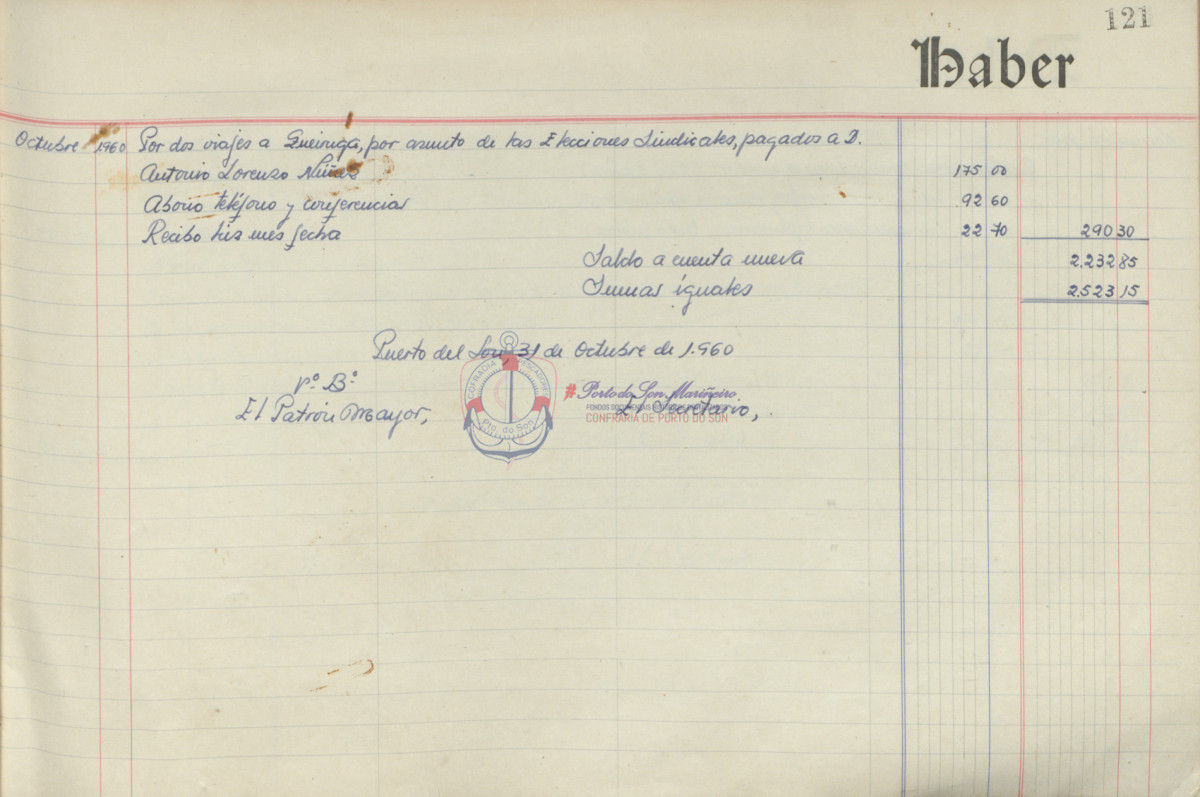 121
Haber
Octubre 1960 Por dos viajes a Queiruga, por asunto de las Elecciones Sindicales, pagados a D.
Antonio Lorenzo 175 00
Abono teléfono y conferencias 92 60
Recibo luz mes fecha 22 70 290 30
Saldo a cuenta nueva 2.232 85
Sumas iguales 2.523 15
Puerto del Son, 31 de Octubre de 1.960
Vº Bº
El Patrón Mayor, El Secretario,
COFRADIA PESCADORES
Pto. do Son
#Porto do Son Mariñeiro
FONDOS DOCUMENTAIS
CONFRARÍA DE PORTO DO SON